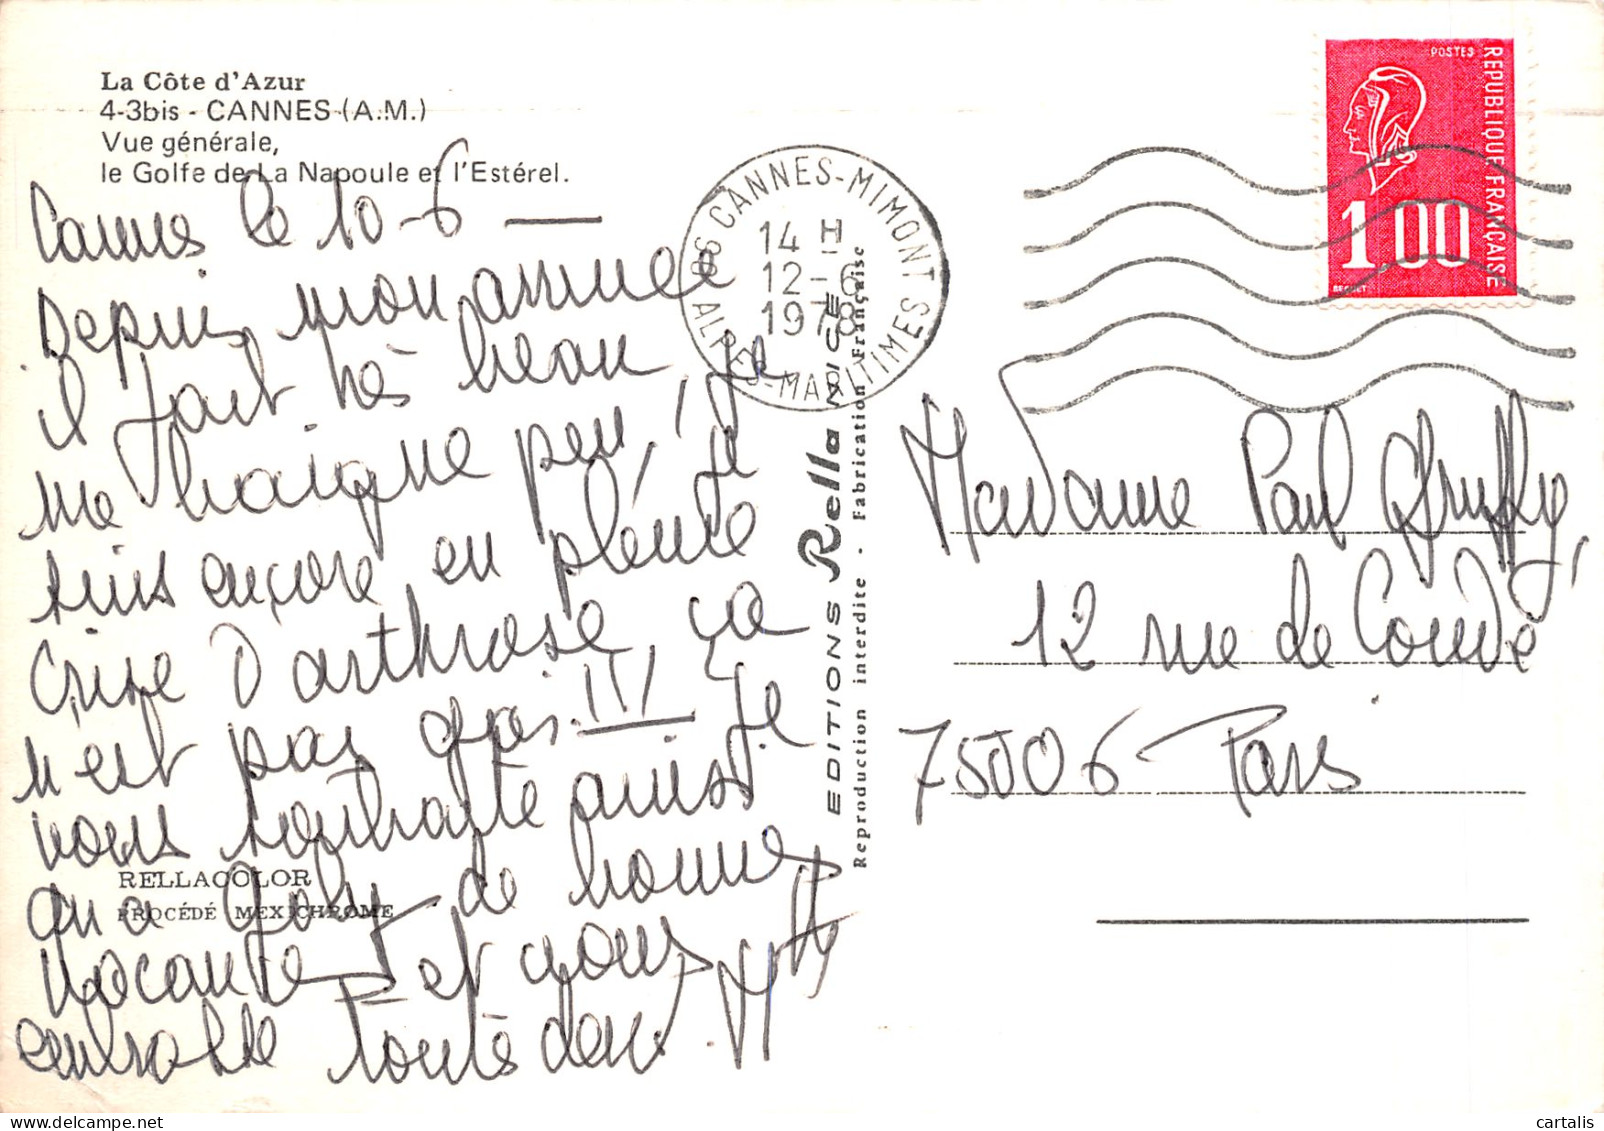 La Côte d'Azur
4-3bis - CANNES (A.M.)
Vue générale,
le Golfe de La Napoule et l'Estérel.
Cannes le 10-6 —
Depuis mon arrivée
il fait très beau, je
me baigne peu, je
suis encore en pleine
crise d'arthrose ça
n'est pas gai !!!
Je
vous souhaite ainsi
qu'a Gaby de bonnes
vacances et vous
embrasse toutes deux.
RELLACOLOR
PROCÉDÉ MEXICHROME
EDITIONS Rella NICE
Reproduction interdite - Fabrication Française
06 CANNES-MIMONT
14 H
12-6
1978
ALPES-MARITIMES
POSTES
REPUBLIQUE FRANÇAISE
1,00
BEQUET
Madame Paul
12 rue de Condé
75006 Paris
cartalis